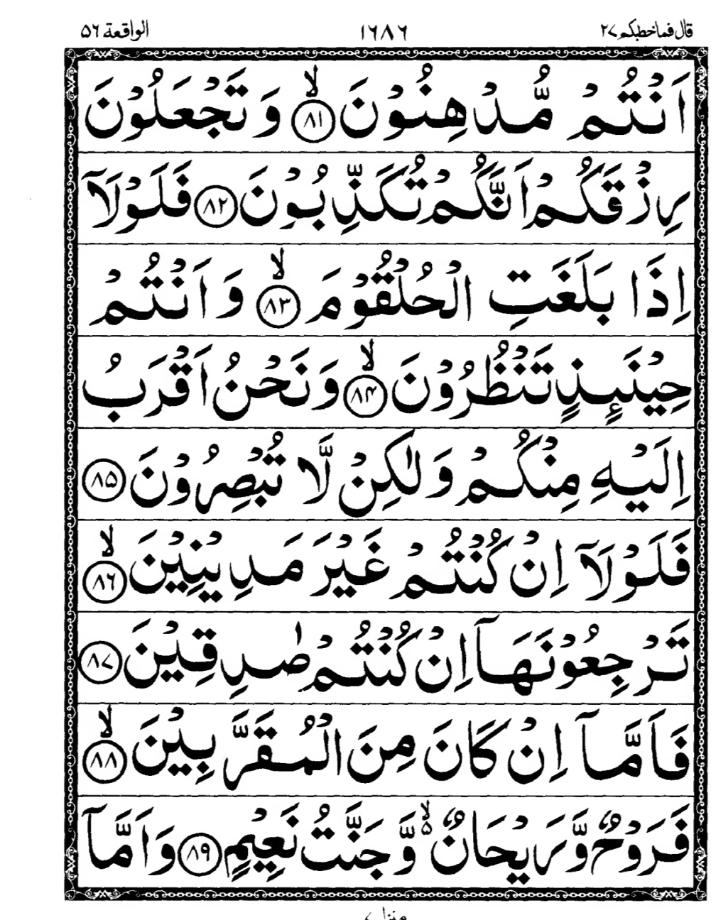 قال فماخطبكم ۲۷ ۱۶۸۶ الواقعة ۵۶
اَنْتُمْ مُّدْهِنُوْنَ ﴿۸۱﴾ۙ وَ تَجْعَلُوْنَ
رِزْقَكُمْ اَنَّكُمْ تُكَذِّبُوْنَ ﴿۸۲﴾ فَلَوْلَاۤ
اِذَا بَلَغَتِ الْحُلْقُوْمَ ﴿۸۳﴾ۙ وَ اَنْتُمْ
حِيْنَىِٕذٍ تَنْظُرُوْنَ ﴿۸۴﴾ۙ وَ نَحْنُ اَقْرَبُ
اِلَيْهِ مِنْكُمْ وَ لٰكِنْ لَّا تُبْصِرُوْنَ ﴿۸۵﴾
فَلَوْلَاۤ اِنْ كُنْتُمْ غَيْرَ مَدِيْنِيْنَ ﴿۸۶﴾ۙ
تَرْجِعُوْنَهَاۤ اِنْ كُنْتُمْ صٰدِقِيْنَ ﴿۸۷﴾
فَاَمَّاۤ اِنْ كَانَ مِنَ الْمُقَرَّبِيْنَ ﴿۸۸﴾ۙ
فَرَوْحٌ وَّ رَيْحَانٌ ۙ۬ وَّ جَنَّتُ نَعِيْمٍ ﴿۸۹﴾ وَ اَمَّاۤ
منزل ۷